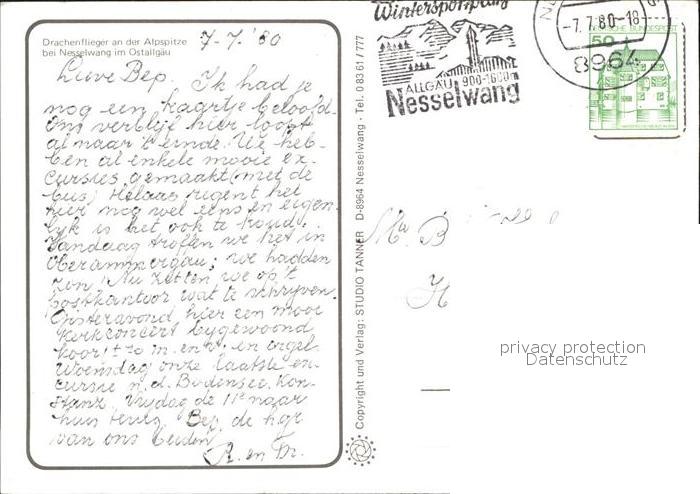 Drachenflieger an der Alpspitze
bei Nesselwang im Ostallgäu
7-7-'80
Lieve Bep. Ik had je
nog een kaartje beloofd.
Ons verblijf hier loopt
al naar 't einde. We heb-
ben al enkele mooie ex-
cursies gemaakt (met de
bus) Helaas regent het
hier nog wel eens en eigen-
lijk is het ook te koud.
Vandaag troffen we het in
Oberammergau; we hadden
zon! Nu zitten we op 't
postkantoor wat te schrijven.
Gisteravond hier een mooi
kerkconcert bijgewoond
koor en orgel
Woensdag onze laatste ex-
cursie n.d. Bodensee, Kon-
stanz. Vrijdag de 11e naar
huis terug. Bep, de hgr
van ons beiden
R. en Dr.
Copyright und Verlag: STUDIO TANNER D-8964 Nesselwang - Tel. 0 83 61 / 777
Wintersportplatz
ALLGÄU 900-1600m
Nesselwang
-7.7.80-18
8964
DEUTSCHE BUNDESPOST
50
B
H
privacy protection
Datenschutz